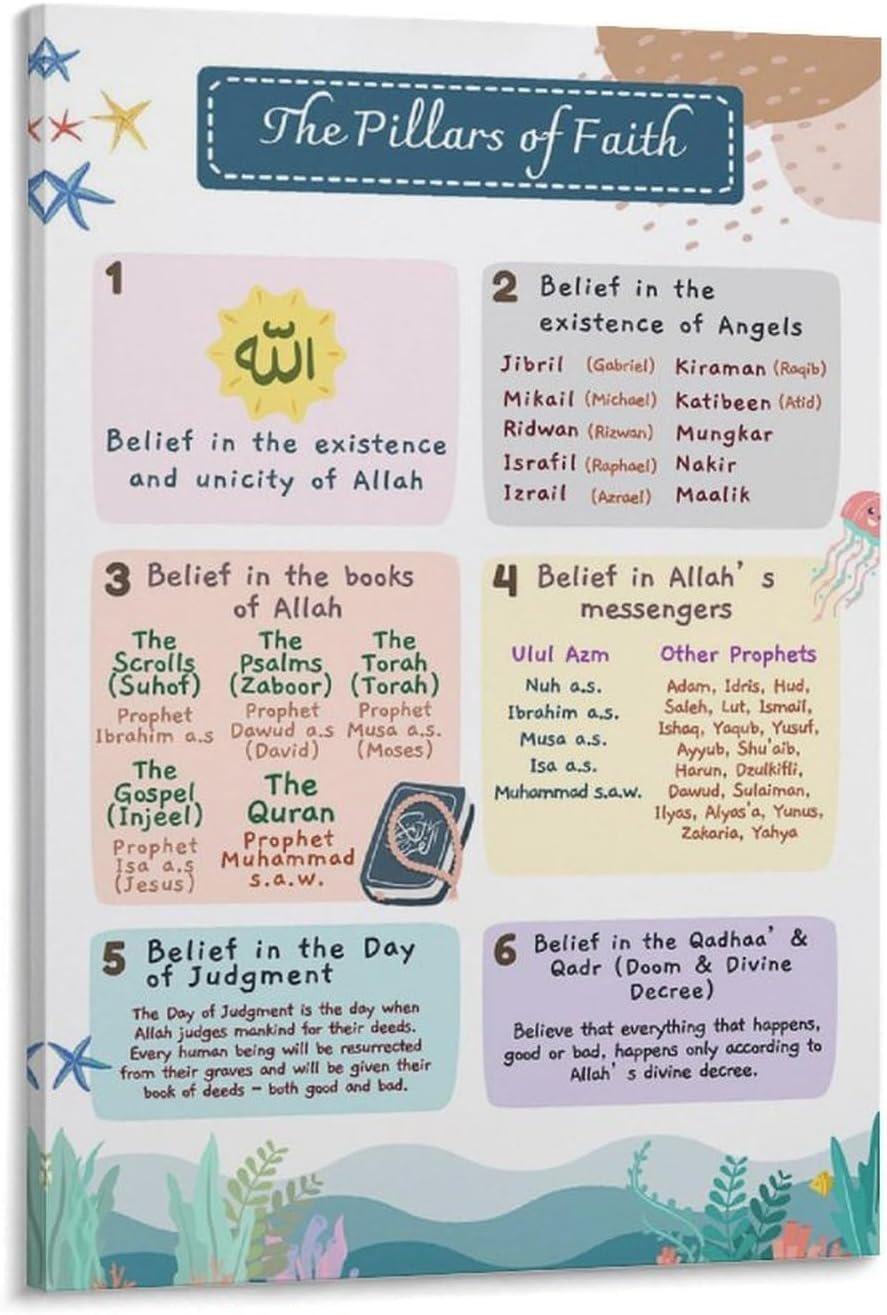 The Pillars of Faith
1
الله
Belief in the existence
and unicity of Allah
2 Belief in the
existence of Angels
Jibril (Gabriel) Kiraman (Raqib)
Mikail (Michael) Katibeen (Atid)
Ridwan (Rizwan) Mungkar
Israfil (Raphael) Nakir
Izrail (Azrael) Maalik
3 Belief in the books
of Allah
The
Scrolls
(Suhof)
Prophet
Ibrahim a.s
The
Psalms
(Zaboor)
Prophet
Dawud a.s
(David)
The
Torah
(Torah)
Prophet
Musa a.s.
(Moses)
The
Gospel
(Injeel)
Prophet
Isa a.s
(Jesus)
The
Quran
Prophet
Muhammad
s.a.w.
4 Belief in Allah' s
messengers
Ulul Azm
Nuh a.s.
Ibrahim a.s.
Musa a.s.
Isa a.s.
Muhammad s.a.w.
Other Prophets
Adam, Idris, Hud,
Saleh, Lut, Ismail,
Ishaq, Yaqub, Yusuf,
Ayyub, Shu'aib,
Harun, Dzulkifli,
Dawud, Sulaiman,
Ilyas, Alyas'a, Yunus,
Zakaria, Yahya
5 Belief in the Day
of Judgment
The Day of Judgment is the day when
Allah judges mankind for their deeds.
Every human being will be resurrected
from their graves and will be given their
book of deeds - both good and bad.
6 Belief in the Qadhaa' &
Qadr (Doom & Divine
Decree)
Believe that everything that happens,
good or bad, happens only according to
Allah' s divine decree.